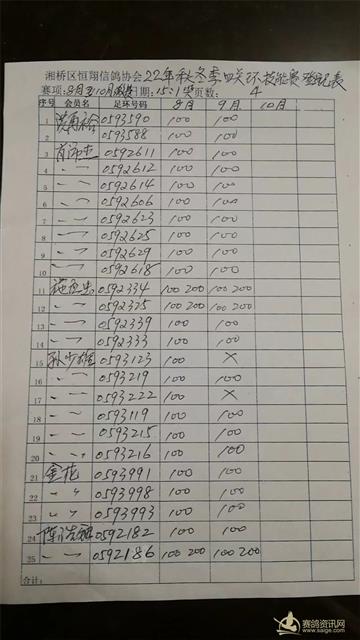 湘桥区恒翔信鸽协会22年秋冬季四关环技能赛登记表
赛项:8月至10月 日期:15:1 页数:4
序号 会员名 足环号码 8月 9月 10月
1 0593590 100 100
2 0593588 100 100
3 0592611 100 100
4 〃 一 0592612 100 100
5 〃 一 0592614 100 100
6 〃 一 0592606 100 100
7 〃 一 0592623 100 100
8 〃 一 0592625 100 100
9 〃 一 0592629 100 100
10 〃 一 0592618 100 100
11 0592334 100 200 100 200
12 〃 一 0592325 100 200 100 200
13 〃 一 0592339 100 100
14 〃 一 0592333 100 100
15 孙少雄 0593123 100 ×
16 〃 一 0593219 100 100
17 〃 一 0593222 100 ×
18 〃 一 0593119 100 100
19 〃 一 0593215 100 100
20 〃 〃 0593216 100 100
21 金花 0593991 100 100
22 〃 〃 0593998 100 100
23 〃 〃 0593993 100 100
24 陈浩 0592182 100 100
25 〃 一 0592186 100 200 100 200
合计:
赛鸽资讯网
www.saige.com